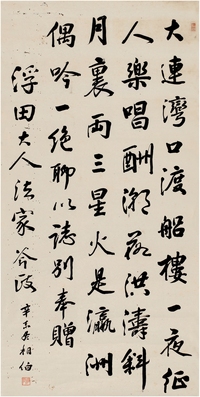 大連灣口渡船樓一夜征
人樂唱酬潮落洪濤斜
月裏兩三星火是瀛洲
偶吟一絕聊以誌別奉贈
浮田大人法家 咨政
辛未 相伯